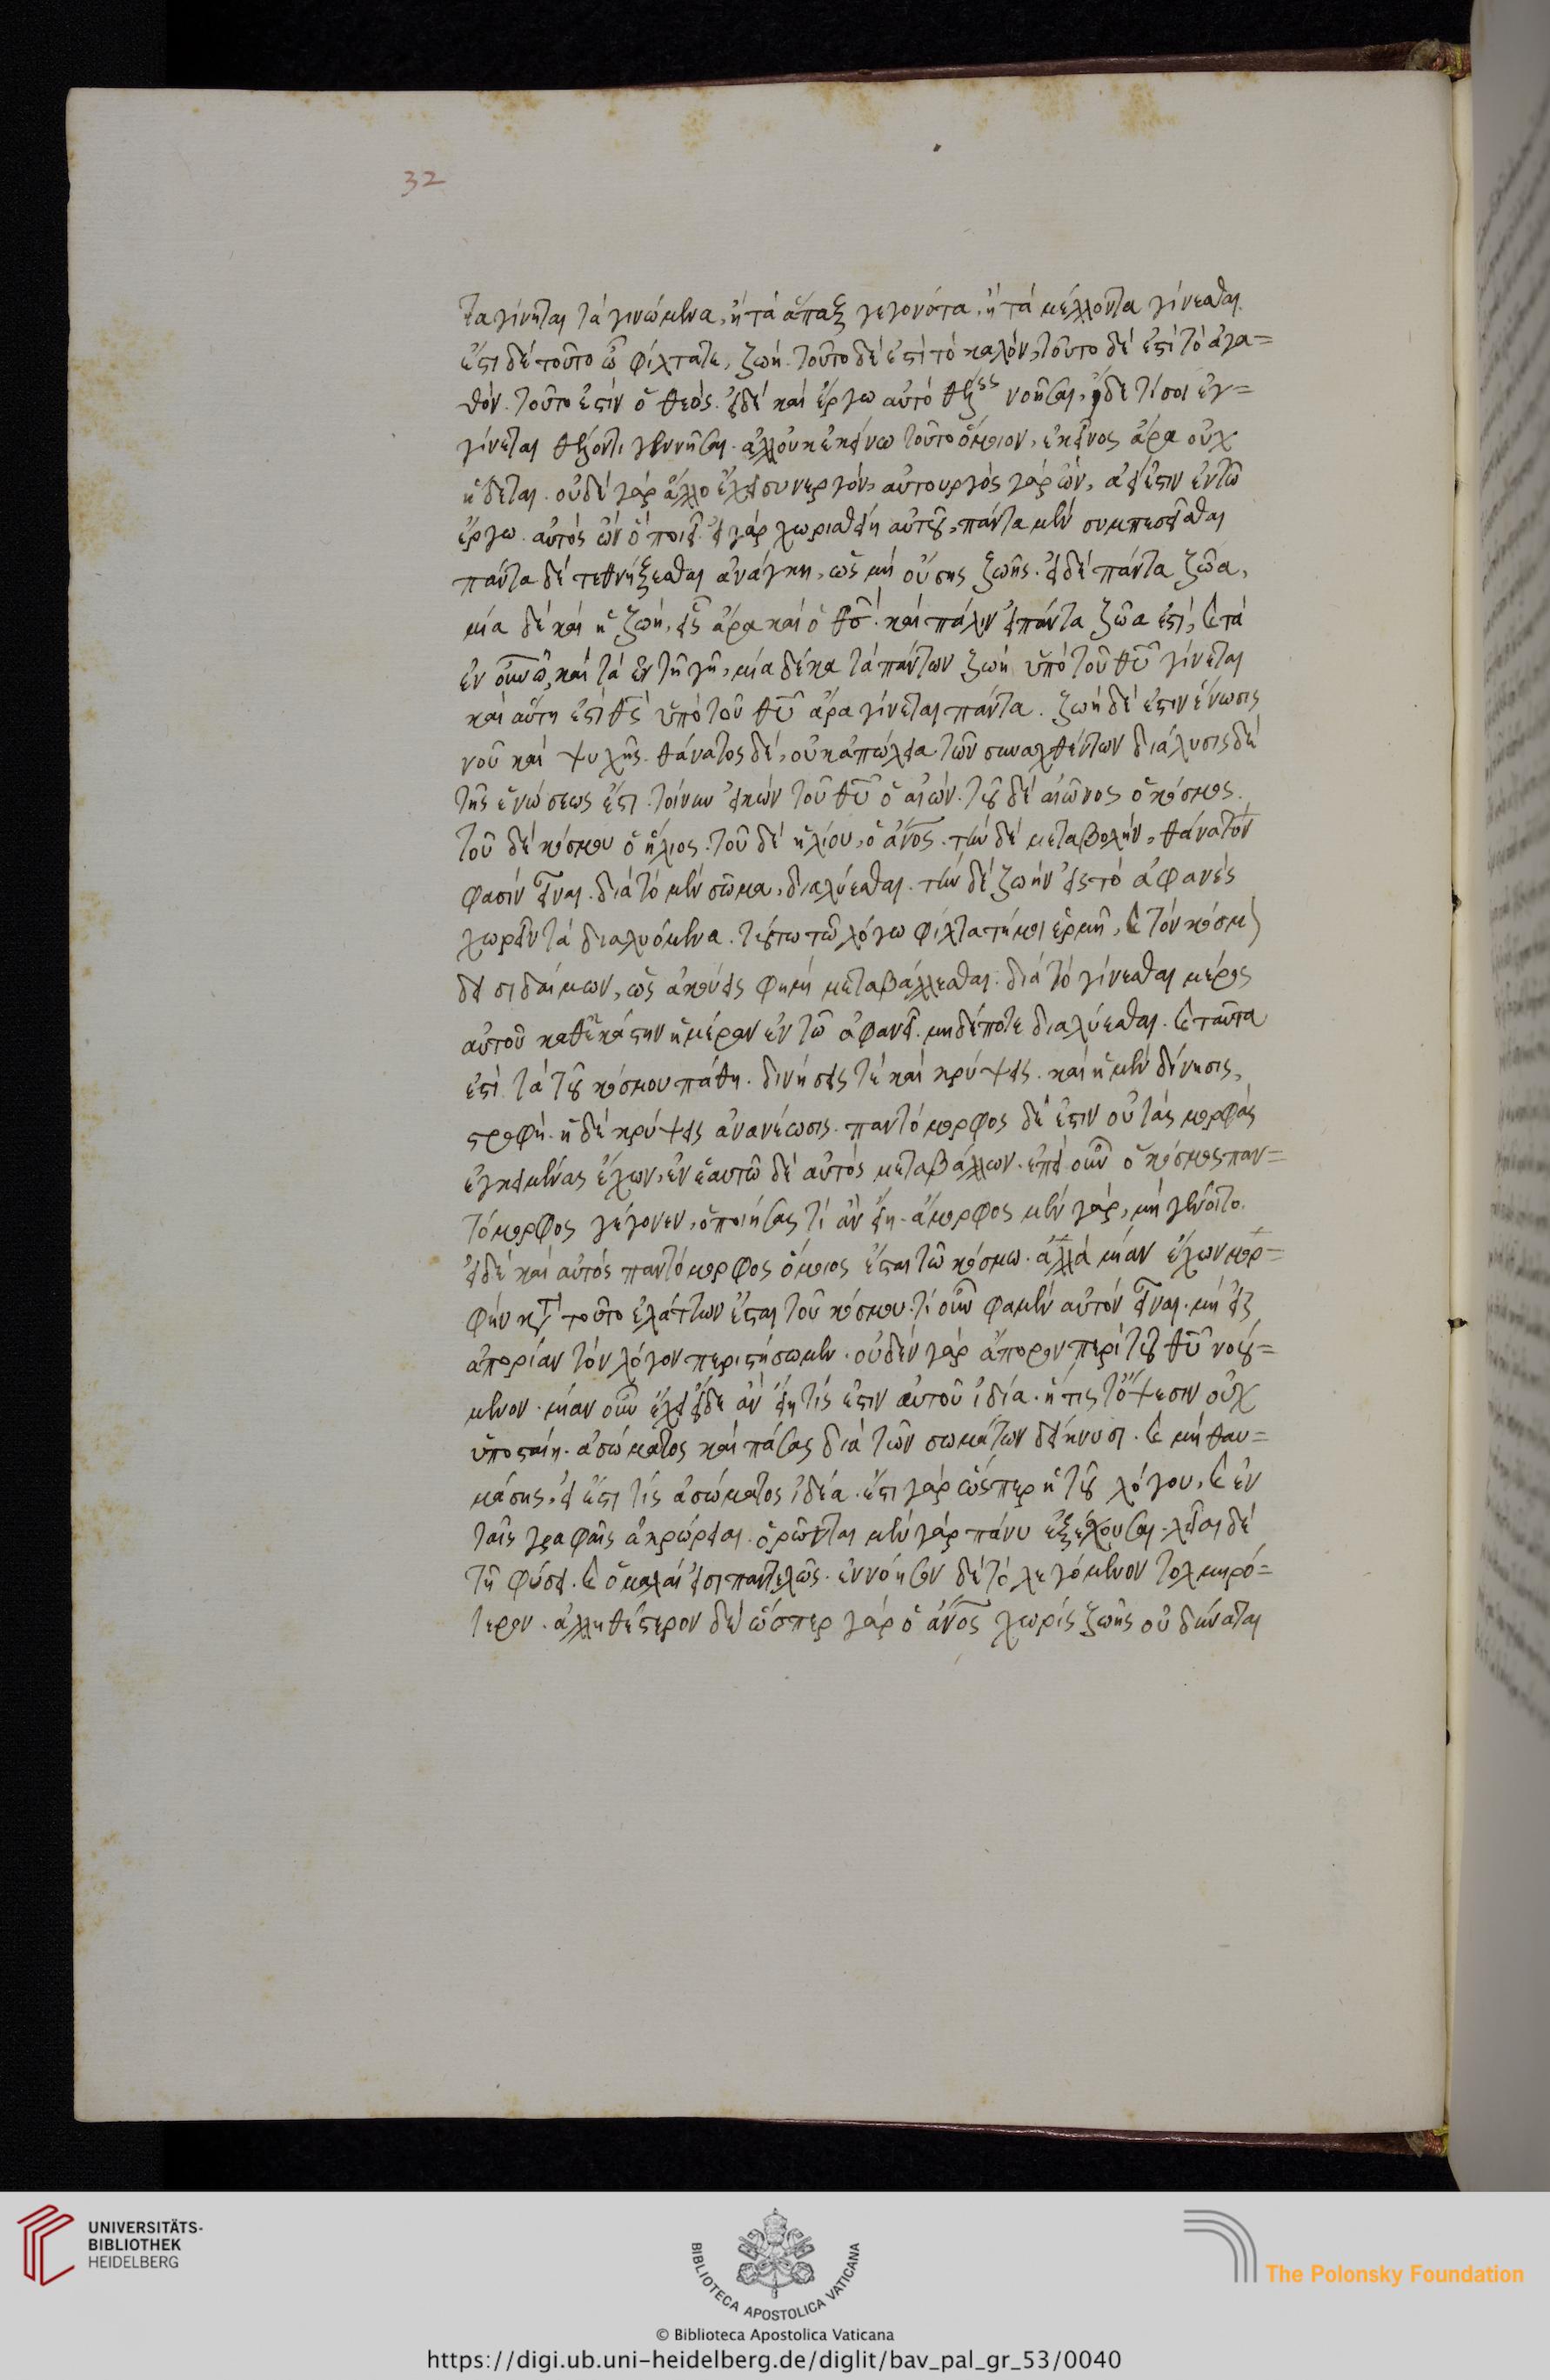 32
τα γίνηται τὰ γινώμενα, ἢ τὰ ἅπαξ γεγονότα, ἢ τὰ μέλλοντα γίνεσθαι.
ἔστι δὲ τοῦτο ὦ φίλτατε, ζωή. τοῦτο δέ ἐστὶ τὸ καλόν, τοῦτο δέ ἐστὶ τὸ ἀγα=
θόν. τοῦτο ἐστὶν ὁ θεός. εἰ δὲ καὶ ἔργω αὐτὸ θέλεις νοῆσαι, ἴδε τί σοι ἐγ=
γίνεται θέλοντι γεννῆσαι. ἀλλ οὐκ ἐκείνω τοῦτο ὅμοιον, ἐκεῖνος ἄρα οὐχ
ἥδεται. οὐδὲ γὰρ ἄλλο ἔχει συνεργόν, αὐτουργὸς γὰρ ὢν, ἀεί ἐστιν ἐν τῶ
ἔργω. αὐτὸς ὢν ὃ ποιεῖ. εἰ γὰρ χωρισθείη αὐτοῦ, πάντα μὲν συμπεσεῖσθαι
πάντα δὲ τεθνήξεσθαι ἀνάγκη, ὡς μὴ οὔσης ζωῆς. εἰ δὲ πάντα ζῶα,
μία δὲ καὶ ἡ ζωή, εἷς ἄρα καὶ ὁ θς. καὶ πάλιν εἰ πάντα ζῶα ἐστὶ, καὶ τὰ
ἐν οὐνῶ, καὶ τὰ ἐν τῆ γῆ, μία δὲ κα τὰ πάντων ζωὴ ὑπὸ τοῦ θυ γίνεται
καὶ αὕτη ἐστὶ θς ὑπὸ τοῦ θυ ἄρα γίνεται πάντα. ζωὴ δέ ἐστιν ἕνωσις
νοῦ καὶ ψυχῆς. θάνατος δὲ, οὐκ ἀπώλεια τῶν συναχθέντων διάλυσις δὲ
τῆς ἑνώσεως ἔστι. τοίνυν εἰκὼν τοῦ θυ ὁ αἰών. τοῦ δὲ αἰῶνος ὁ κόσμος.
τοῦ δὲ κόσμου ὁ ἥλιος. τοῦ δὲ ἡλίου, ὁ ἄνος. τὴν δὲ μεταβολὴν, θάνατόν
φασὶν εἶναι. διὰ τὸ μὲν σῶμα, διαλύεσθαι. τὴν δὲ ζωὴν εἰς τὸ ἀφανὲς
χωρεῖν τὰ διαλυόμενα. τούτω τῶ λόγω φίλτατή μοι ἑρμῆ, καὶ τὸν κόσμον
δει σι δαίμων, ὡς ἀκούεις φημὶ μεταβάλλεσθαι. διὰ τὸ γίνεσθαι μέρος
αὐτοῦ καθ ἑκάστην ἡμέραν ἐν τῶ ἀφανεῖ. μηδέποτε διαλύεσθαι. καὶ ταῦτα
ἐστὶ τὰ τοῦ κόσμου πάθη. δινήσεις τὲ καὶ κρύψεις. καὶ ἡ μὲν δίνησις,
στροφή. ἡ δὲ κρύψεις ἀνανέωσις. παντόμορφος δέ ἐστιν οὐ τὰς μορφὰς
ἐγκειμένας ἔχων, ἐν ἑαυτῶ δὲ αὐτὸς μεταβάλλων. ἐπεὶ οὖν ὁ κόσμος παν=
τόμορφος γέγονεν, ὁ ποιήσας τί ἂν εἴη. ἄμορφος μὲν γὰρ, μὴ γένοιτο.
εἰ δὲ καὶ αὐτὸς παντόμορφος ὅμοιος ἔσται τῶ κόσμω. ἀλλὰ μίαν ἔχων μορ=
φὴν κατὰ τοῦτο ἐλάττων ἔσται τοῦ κόσμου. τί οὖν φαμὲν αὐτὸν εἶναι. μὴ εἰς
ἀπορίαν τὸν λόγον περιστήσωμεν. οὐδὲν γὰρ ἄπορον περὶ τοῦ θυ νοού=
μενον. μίαν οὖν ἔχει εἴδε ἂν εἴη τίς ἐστιν αὐτοῦ ἰδία. ἥ τις τὄψεσιν οὐχ
ὑποσταίη. ἀσώματος καὶ πάσας διὰ τῶν σωμάτων δείκνυσι. καὶ μὴ θαυ=
μάσης, εἰ ἔστι τίς ἀσώματος ἰδέα. ἔστι γὰρ ὥσπερ ἡ τοῦ λόγου, καὶ ἐν
ταῖς γραφαῖς ἀκρώρειαι. ὁρῶνται μὲν γὰρ πάνυ ἐξέχουσαι. λεῖαι δὲ
τῆ φύσει. καὶ ὁμαλαί εἰσι παντελῶς. ἐννόησον δὲ τὸ λεγόμενον τολμηρό=
τερον. ἀλληθέστερον δὲ ὥσπερ γὰρ ὁ ἄνος χωρὶς ζωῆς οὐ δύναται
UNIVERSITÄTS-
BIBLIOTHEK
HEIDELBERG
BIBLIOTECA APOSTOLICA VATICANA
The Polonsky Foundation
© Biblioteca Apostolica Vaticana
https://digi.ub.uni-heidelberg.de/diglit/bav_pal_gr_53/0040